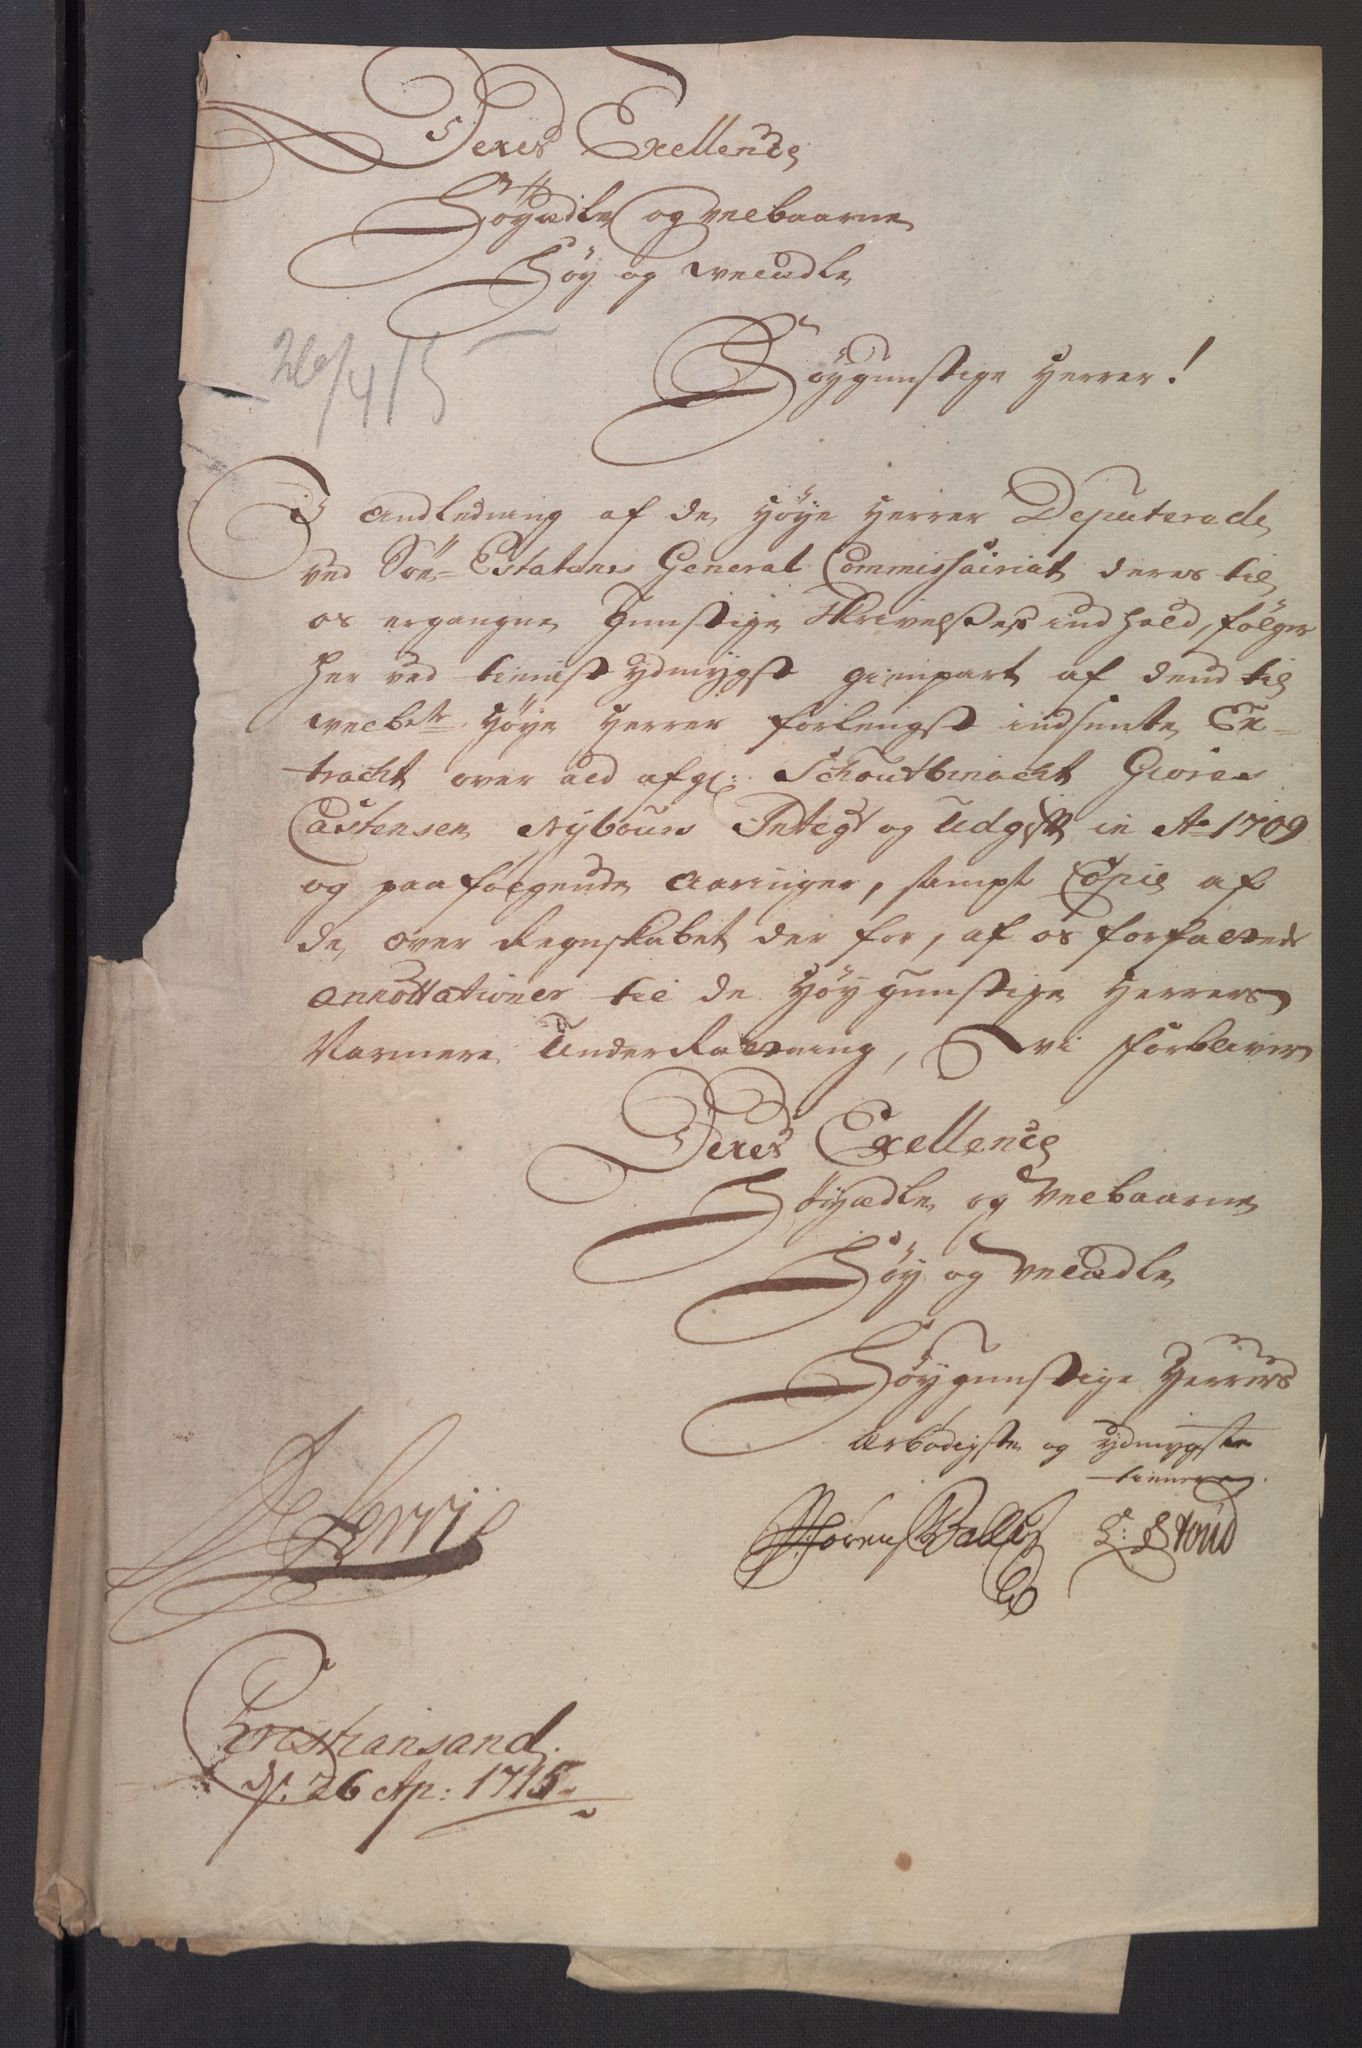 Deres Exellence
Höyædle og velbaarne
Höy og velædle
26/4 15
Höygunstige Herrer!
I andledning af de Höye Herrer Deputerede
ved Söe-Estatens General Commissariat deres til
os ergangne gunstige Skrivelses indhold, fölger
her ved tienist ydmygst gienpart af dend til
velbte Höye Herrer forlengst indsente Ex-
tracht over ald afg: Schoutbinacht Giores
Castensen Nybours Integt og Udgift in Ao 1709
og paafølgende aaringer, sampt Copie af
de, over Regnskabet der for, af os forfattede
annottationer til de Höygunstige Herrers
Narmere Underretning, vi forbliver
Deres Exellence
Höyædle og Velbaarne
Höy og Velædle
Höygunstige Herrers
ærbödigste og ydmygste
tienere
Sören Balle
Christiansand
d. 26 Ap: 1715